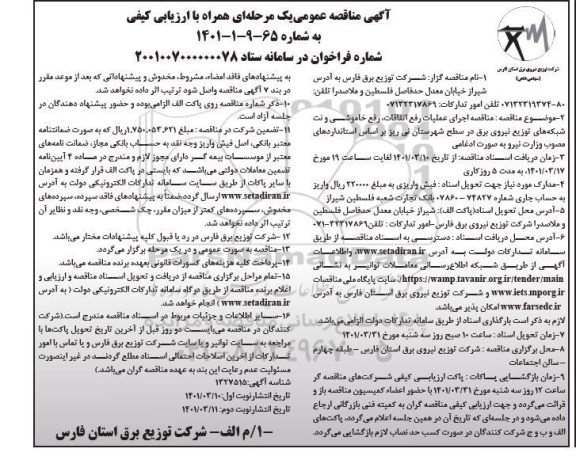 آگهی مناقصه عمومی‌یک مرحله‌ای همراه با ارزیابی کیفی
به شماره ۶۵-۹-۱-۱۴۰۱
شماره فراخوان در سامانه ستاد ۲۰۰۱۰۰۷۰۰۰۰۰۰۰۷۸
شرکت توزیع نیروی برق استان فارس
(سهامی خاص)
۱-نام مناقصه گزار: شرکت توزیع برق فارس به آدرس
شیراز خیابان معدل حدفاصل فلسطین و ملاصدرا تلفن:
۸۰-۰۷۱۳۲۳۱۹۳۷۴ تلفن امور تدارکات: ۰۷۱۳۲۳۱۷۸۶۹
۲-موضوع مناقصه: مناقصه اجرای عملیات رفع اتفاقات، رفع خاموشی و نت
شبکه‌های توزیع نیروی برق در سطح شهرستان نی ریز بر اساس استانداردهای
مصوب وزارت نیرو به صورت ادغامی
۳-زمان دریافت اسناد مناقصه: از تاریخ ۱۴۰۱/۰۳/۱۰ لغایت ساعت ۱۹ مورخ
۱۴۰۱/۰۳/۱۷، به مدت ۵ روزکاری
۴-مدارک مورد نیاز جهت تحویل اسناد: فیش واریزی به مبلغ ۲۲۰۰۰۰ ریال واریز
به حساب جاری شماره ۷۴۸۲۷-۰۷۸۶۰ بانک تجارت شعبه فلسطین شیراز
۵-آدرس محل تحویل اسناد(پاکت الف): شیراز خیابان معدل حدفاصل فلسطین
و ملاصدرا شرکت توزیع نیروی برق فارس-امور تدارکات : تلفن ۳۲۳۱۷۸۶۹-۰۷۱
۶-محل دریافت اسناد : دسترسی به اسناد مناقصه از طریق
سامانه تدارکات دولت به آدرس www.setadiran.ir، واطلاعات
آگهی از طریق شبکه اطلاع‌رسانی معاملات توانیر به نشانی
https://wamp.tavanir.org.ir/tender/main، سایت پایگاه ملی مناقصات
www.iets.mporg.ir و شرکت توزیع نیروی برق استان فارس به آدرس
www.farsedc.ir امکان پذیر می‌باشد.
لازم به ذکر است بارگذاری اسناد از طریق سامانه تدارکات دولت الزامی‌می‌باشد.
۷-زمان تحویل اسناد : ساعت ۱۰ صبح روز سه شنبه مورخ ۱۴۰۱/۰۳/۳۱
۸-محل برگزاری مناقصه : شرکت توزیع نیروی برق استان فارس – طبقه چهارم
– سالن اجتماعات
۹-زمان بازگشایی پاکات : پاکت ارزیابی کیفی شرکت‌های مناقصه گر
ساعت ۱۲ روز سه شنبه مورخ ۱۴۰۱/۰۳/۳۱ با حضور اعضاء کمیسیون مناقصه باز و
قرائت می‌گردد و جهت ارزیابی کیفی مناقصه گران به کمیته فنی بازرگانی ارجاع
داده می‌شود و در جلسه‌ای که تاریخ آن در همین جلسه اعلام می‌گردد، پاکت‌های
الف و ب و ج شرکت کنندگان در صورت کسب حد نصاب لازم بازگشایی می‌گردد.
به پیشنهادهای فاقد امضاء، مشروط، مخدوش و پیشنهاداتی که بعد از موعد مقرر
در بند ۷ آگهی مناقصه واصل شود ترتیب اثر داده نخواهد شد.
۱۰-ذکر شماره مناقصه روی پاکت الف الزامی‌بوده و حضور پیشنهاد دهندگان در
جلسه آزاد است.
۱۱-تضمین شرکت در مناقصه : مبلغ ۱.۷۵۰.۰۵۳.۶۳۱ریال که به صورت ضمانتنامه
معتبر بانکی، اصل فیش واریز وجه نقد به حساب بانکی مجاز، ضمانت نامه‌های
معتبر از موسسات بیمه گر دارای مجوز لازم و مندرج در ماده ۴ آیین‌نامه
تضمین معاملات دولتی می‌باشد که بایستی در پاکت الف قرار گرفته و همزمان
با سایر پاکات از طریق سایت سامانه تدارکات الکترونیکی دولت به آدرس
www.setadiran.ir ارسال گردد ضمناً به پیشنهادهای فاقد سپرده، سپرده‌های
مخدوش، سپرده‌های کمتر از میزان مقرر، چک شخصی، وجه نقد و نظایر آن
ترتیب اثر داده نخواهد شد.
۱۲-شرکت توزیع برق فارس در رد یا قبول کلیه پیشنهادات مختار می‌باشد.
۱۳-مناقصه به صورت عمومی و در یک مرحله برگزار می‌گردد.
۱۴-پرداخت کلیه هزینه‌های کسورات قانونی بعهده برنده مناقصه می‌باشد.
۱۵-تمام مراحل برگزاری مناقصه از دریافت و تحویل اسناد مناقصه و ارزیابی و
اعلام برنده مناقصه از طریق درگاه سامانه تدارکات الکترونیکی دولت به آدرس
( www.setadiran.ir ) انجام خواهد شد.
۱۶-سایر اطلاعات و جزئیات مربوط در اسناد مناقصه مندرج است.(شرکت
کنندگان در مناقصه می‌بایست دو روز قبل از آخرین تاریخ تحویل پاکت‌ها با
مراجعه به سایت توانیر و یا سایت شرکت توزیع برق فارس و یا تماس با امور
تدارکات از آخرین اصلاحات احتمالی اسناد مطلع گردند در غیر اینصورت
مسئولیت عدم رعایت این بند به عهده مناقصه گران می‌باشد.)
شناسه آگهی: ۱۳۲۷۵۱۵
تاریخ انتشارنوبت اول: ۱۴۰۱/۰۳/۱۰
تاریخ انتشارنوبت دوم: ۱۴۰۱/۰۳/۱۱
۱/م الف- شرکت توزیع برق استان فارس